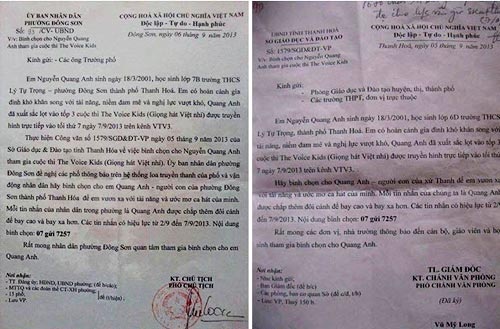 ỦY BAN NHÂN DÂN
PHƯỜNG ĐÔNG SƠN
CỘNG HOÀ XÃ HỘI CHỦ NGHĨA VIỆT NAM
Độc lập - Tự do - Hạnh phúc
Số: /CV- UBND
V/v Bình chọn cho Nguyễn Quang
Anh tham gia cuộc thi The Voice Kids
Đông Sơn, ngày 06 tháng 9 năm 2013
Kính gửi: - Các ông Trưởng phố
Em Nguyễn Quang Anh sinh ngày 18/3/2001, học sinh lớp 7B trường THCS
Lý Tự Trọng – phường Đông Sơn thành phố Thanh Hoá. Em có hoàn cảnh gia
đình khó khăn song với tài năng, niềm đam mê và nghị lực vượt khó, Quang Anh
đã xuất sắc lọt vào tốp 3 cuộc thi The Voice Kids (Giọng hát Việt nhí) được truyền
hình trực tiếp vào tối thứ 7 ngày 7/9/2013 trên kênh VTV3.
Thực hiện Công văn số 1579/SGD&ĐT-VP ngày 05 tháng 9 năm 2013 của
Sở Giáo dục & Đào tạo tỉnh Thanh Hoá về việc bình chọn cho Nguyễn Quang Anh
tham gia cuộc thi The Voice Kids (Giọng hát Việt nhí). Uỷ ban nhân dân phường
Đông Sơn đề nghị các phố thông báo trên hệ thống loa truyền thanh của phố và vận
động nhân dân hãy bình chọn cho em Quang Anh - người con của phường Đông
Sơn thành phố Thanh Hoá để em vươn xa với tài năng và ước mơ ca hát của mình.
Mỗi tin nhắn của nhân dân trong phường là Quang Anh được chắp thêm đôi cánh
để bay cao và bay xa hơn. Các tin nhắn có hiệu lực từ 2/9 đến 7/9/2013. Nội dung
bình chọn: 07 gửi 7257
Rất mong nhân dân phường Đông Sơn quan tâm tham gia bình chọn cho em
Quang Anh.
Nơi nhận:
- TT. Đảng ủy; HĐND, UBND phường; (để b/cáo);
- MTTQ và các đoàn thể CT-XH phường;
- 13 phố; (để t/hiện)
- Lưu VP.
KT. CHỦ TỊCH
PHÓ CHỦ TỊCH
UBND TỈNH THANH HOÁ
SỞ GIÁO DỤC VÀ ĐÀO TẠO
CỘNG HOÀ XÃ HỘI CHỦ NGHĨA VIỆT NAM
Độc lập - Tự do - Hạnh phúc
Số: 1579/SGD&ĐT-VP
V/v bình chọn cho Nguyễn Quang Anh
tham gia cuộc thi The Voice Kids
Thanh Hoá, ngày 05 tháng 9 năm 2013
Kính gửi:
- Phòng Giáo dục và Đào tạo huyện, thị, thành phố
- Các trường THPT, đơn vị trực thuộc
Em Nguyễn Quang Anh sinh ngày 18/3/2001, học sinh lớp 6D trường THCS
Lý Tự Trọng, thành phố Thanh Hoá. Em có hoàn cảnh gia đình khó khăn song với
tài năng, niềm đam mê và nghị lực vượt khó, Quang Anh đã xuất sắc lọt vào tốp 3
cuộc thi The Voice Kids (Giọng hát Việt nhí) được truyền hình trực tiếp vào tối thứ
7 ngày 7/9/2013 trên kênh VTV3.
Hãy bình chọn cho Quang Anh – người con của xứ Thanh để em vươn xa
với tài năng và ước mơ ca hát của mình. Mỗi tin nhắn của chúng ta là Quang Anh
được chắp thêm đôi cánh để bay cao và bay xa hơn. Các tin nhắn có hiệu lực từ
2/9 đến 7/9/2013. Nội dung bình chọn: 07 gửi 7257
Rất mong các đơn vị, nhà trường thông báo đến cán bộ, giáo viên và học
sinh tham gia bình chọn cho Quang Anh.
Nơi nhận:
- Như kính gửi;
- Ban Giám đốc (để b/c)
- Các phòng, ban cơ quan Sở (để c/đ, t/h)
- Lưu VP, Thuỷ 150 b.
TL. GIÁM ĐỐC
KT. CHÁNH VĂN PHÒNG
PHÓ CHÁNH VĂN PHÒNG
(Đã ký)
Vũ Mỹ Long